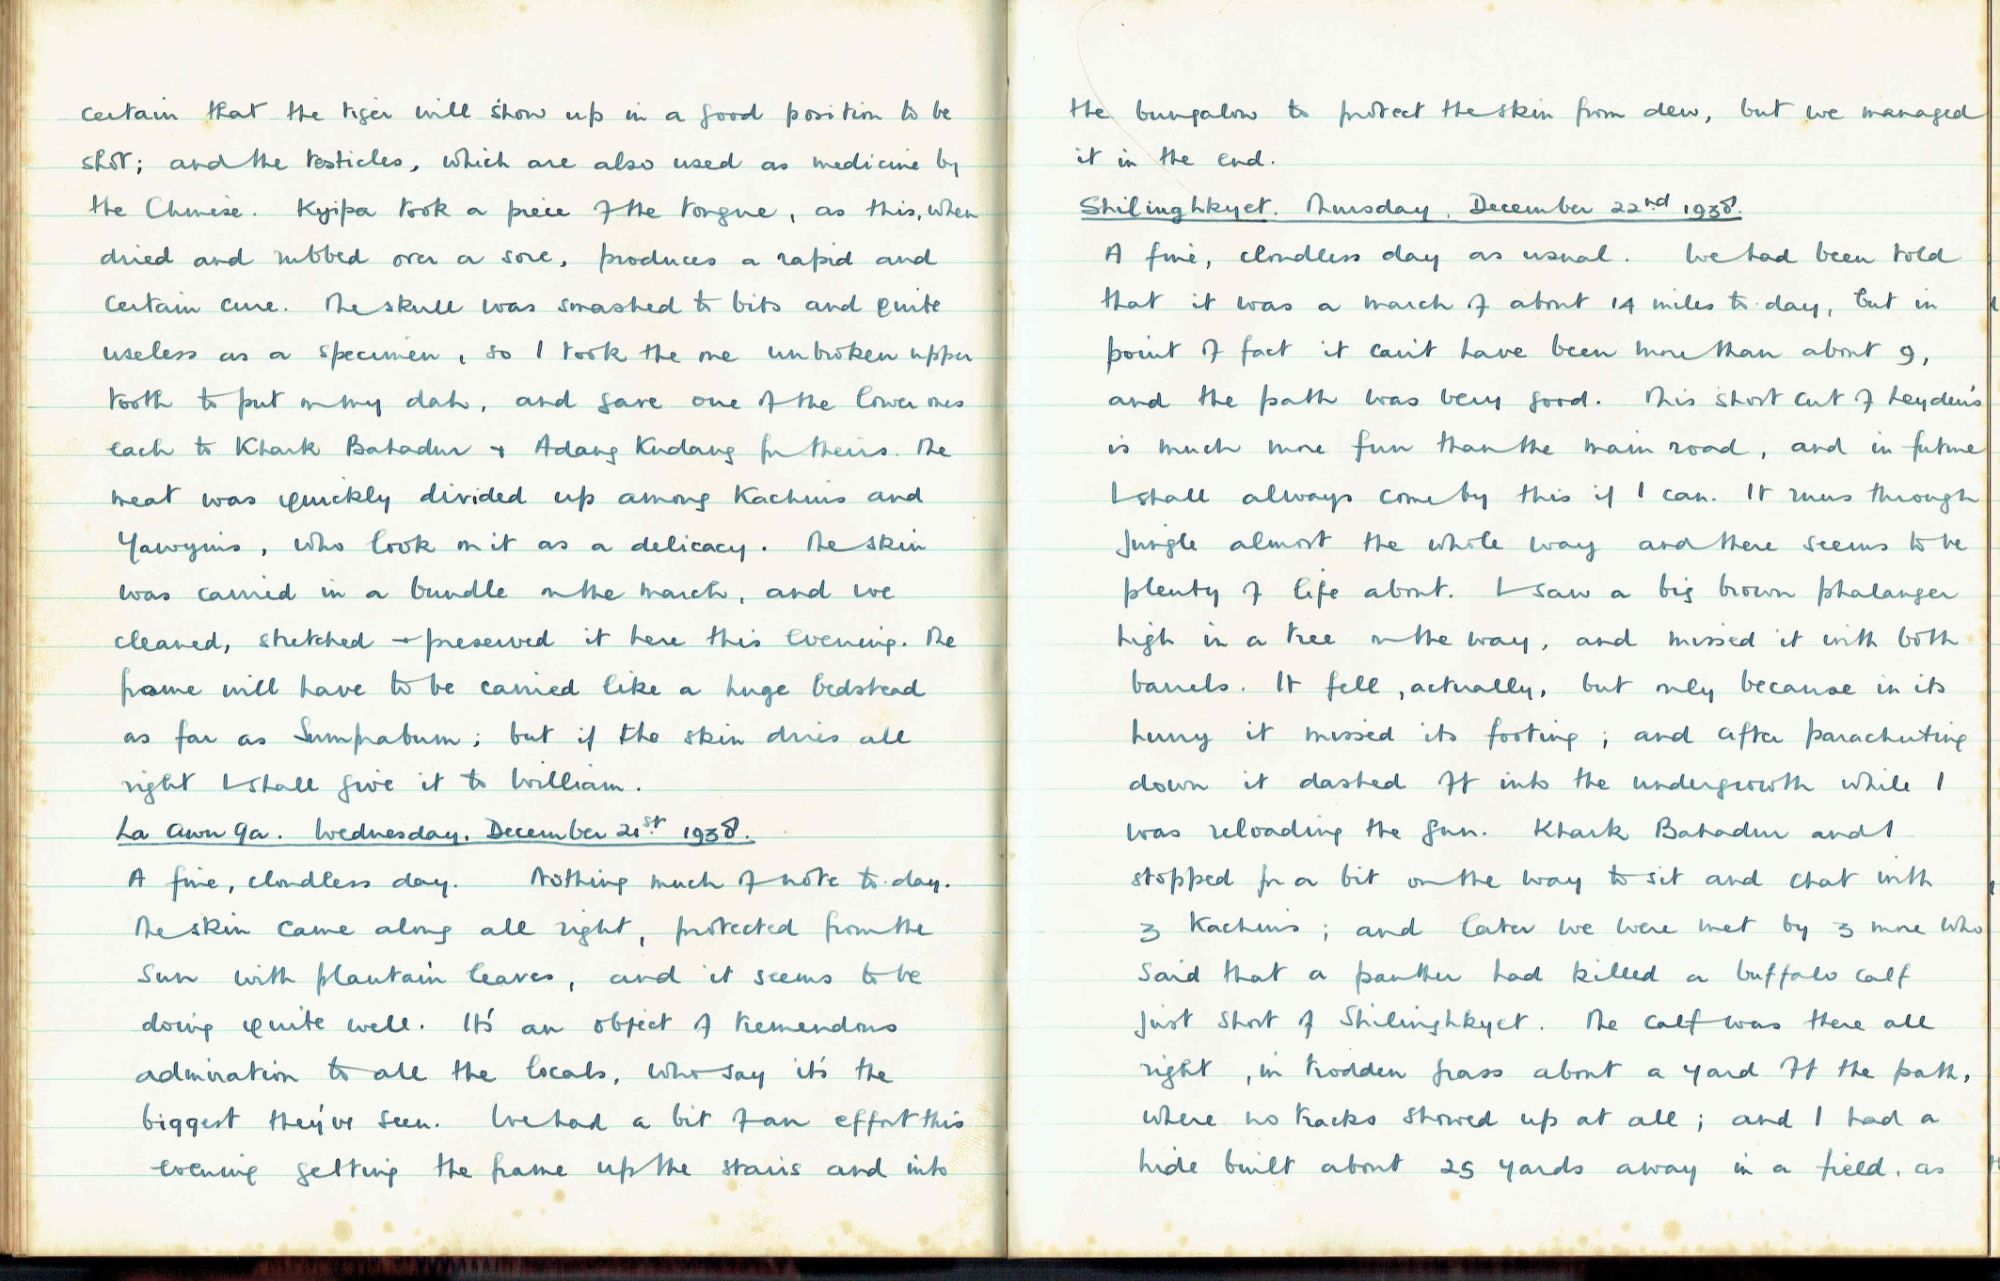 certain that the tiger will show up in a good position to be
shot; and the testicles, which are also used as medicine by
the Chinese. Kyipa took a piece of the tongue, as this, when
dried and rubbed over a sore, produces a rapid and
certain cure. The skull was smashed to bits and quite
useless as a specimen, so I took the one unbroken upper
tooth to put on my dah, and gave one of the lower ones
each to Khark Bahadur + Adang Kudang for theirs. The
meat was quickly divided up among Kachins and
Yawyins, who look on it as a delicacy. The skin
was carried in a bundle on the march, and we
cleaned, stretched + preserved it here this evening. The
frame will have to be carried like a huge bedstead
as far as Sumprabum; but if the skin dries all
right I shall give it to William.
La Awn Ga. Wednesday. December 21st. 1938.
A fine, cloudless day. Nothing much of note to-day.
The skin came along all right, protected from the
sun with plantain leaves, and it seems to be
doing quite well. It's an object of tremendous
admiration to all the locals, who say it's the
biggest they've seen. We had a bit of an effort this
evening getting the frame up the stairs and into
the bungalow to protect the skin from dew, but we managed
it in the end.
Shilinghkyet. Thursday. December 22nd 1938.
A fine, cloudless day as usual. We had been told
that it was a march of about 14 miles to-day, but in
point of fact it can't have been more than about 9,
and the path was very good. This short cut of Leyden's
is much more fun than the main road, and in future
I shall always come by this if I can. It runs through
jungle almost the whole way and there seems to be
plenty of life about. I saw a big brown phalanger
high in a tree on the way, and missed it with both
barrels. It fell, actually, but only because in its
hurry it missed its footing; and after parachuting
down it dashed off into the undergrowth while I
was reloading the gun. Khark Bahadur and I
stopped for a bit on the way to sit and chat with
3 Kachins; and later we were met by 3 more who
said that a panther had killed a buffalo calf
just short of Shilinghkyet. The calf was there all
right, in trodden grass about a yard off the path,
where no tracks showed up at all; and I had a
hide built about 25 yards away in a field, as